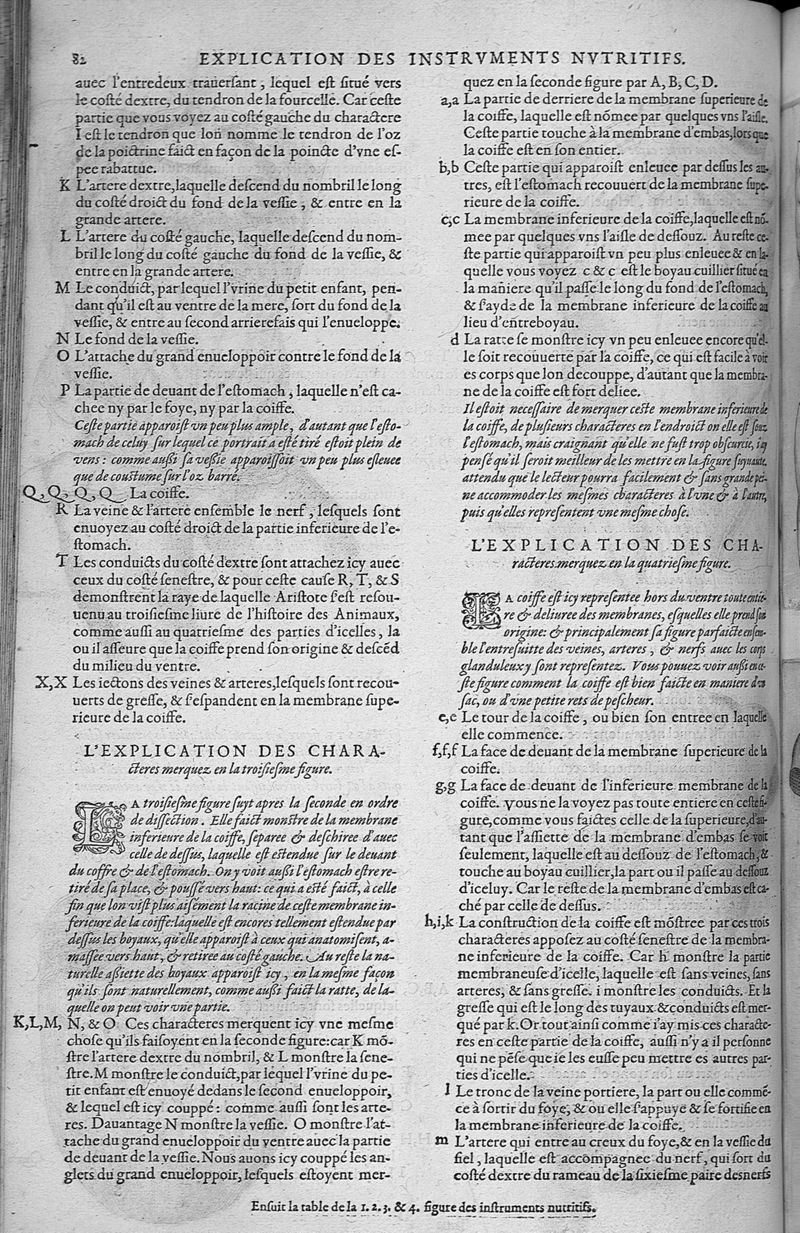 82 EXPLICATION DES INSTRVMENTS NVTRITIFS.
auec l'entredeux trauersant, lequel est situé vers
le costé dextre, du tendron de la fourcelle. Car ceste
partie que vous voyez au costé gauche du charactere
I est le tendron que lon nomme le tendron de l'oz
de la poictrine faict en façon de la poincte d'vne es-
pee rabattue.
K L'artere dextre, laquelle descend du nombril le long
du costé droict du fond de la vessie, & entre en la
grande artere.
L L'artere du costé gauche, laquelle descend du nom-
bril le long du costé gauche du fond de la vessie, &
entre en la grande artere.
M Le conduict, par lequel l'vrine du petit enfant, pen-
dant qu'il est au ventre de la mere, sort du fond de la
vessie, & entre au second arrierefais qui l'enueloppe.
N Le fond de la vessie.
O L'attache du grand enueloppoir contre le fond de la
vessie.
P La partie de deuant de l'estomach, laquelle n'est ca-
chee ny par le foye, ny par la coiffe.
Ceste partie apparoist vn peu plus ample, d'autant que l'esto-
mach de celuy sur lequel ce portrait a esté tiré estoit plein de
vens: comme aussi sa vessie apparoissoit vn peu plus esleuee
que de coustume sur l'oz barré.
Q, Q, Q, Q La coiffe.
R La veine & l'artere ensemble le nerf, lesquels sont
enuoyez au costé droict de la partie inferieure de l'e-
stomach.
T Les conduicts du costé dextre sont attachez icy auec
ceux du costé senestre, & pour ceste cause R, T, & S
demonstrent la raye de laquelle Aristote s'est resou-
uenu au troisiesme liure de l'histoire des Animaux,
comme aussi au quatriesme des parties d'icelles, la
ou il asseure que la coiffe prend son origine & descēd
du milieu du ventre.
X, X Les iectons des veines & arteres, lesquels sont recou-
uerts de gresse, & s'espandent en la membrane supe-
rieure de la coiffe.
L'EXPLICATION DES CHARA-
cteres merquez en la troisiesme figure.
LA troisiesme figure suyt apres la seconde en ordre
de dissection. Elle faict monstre de la membrane
inferieure de la coiffe, separee & deschiree d'auec
celle de dessus, laquelle est estendue sur le deuant
du coffre & de l'estomach. On y voit aussi l'estomach estre re-
tiré de sa place, & poussé vers haut: ce qui a esté faict, à celle
fin que lon vist plus aisément la racine de ceste membrane in-
ferieure de la coiffe: laquelle est encores tellement estendue par
dessus les boyaux, qu'elle apparoist à ceux qui anatomisent, a-
massee vers haut, & retiree au costé gauche. Au reste la na-
turelle assiette des boyaux apparoist icy, en la mesme façon
qu'ils sont naturellement, comme aussi faict la ratte, de la-
quelle on peut voir vne partie.
K, L, M, N, & O Ces characteres merquent icy vne mesme
chose qu'ils faisoyent en la seconde figure: car K mō-
stre l'artere dextre du nombril, & L monstre la sene-
stre. M monstre le conduict, par lequel l'vrine du pe-
tit enfant est enuoyé dedans le second enueloppoir,
& lequel est icy couppé: comme aussi sont les arte-
res. Dauantage N monstre la vessie. O monstre l'at-
tache du grand enueloppoir du ventre auec la partie
de deuant de la vessie. Nous auons icy couppé les an-
glets du grand enueloppoir, lesquels estoyent mer-
quez en la seconde figure par A, B, C, D.
a, a La partie de derriere de la membrane superieure de
la coiffe, laquelle est nōmee par quelques vns l'aisle.
Ceste partie touche à la membrane d'embas, lors que
la coiffe est en son entier.
b, b Ceste partie qui apparoist enleuee par dessus les au-
tres, est l'estomach recouuert de la membrane supe-
rieure de la coiffe.
c, c La membrane inferieure de la coiffe, laquelle est nō-
mee par quelques vns l'aisle de dessouz. Au reste ce-
ste partie qui apparoist vn peu plus enleuee & en la-
quelle vous voyez c & c est le boyau cuillier situé en
la maniere qu'il passe le long du fond de l'estomach,
& s'ayde de la membrane inferieure de la coiffe au
lieu d'entreboyau.
d La ratte se monstre icy vn peu enleuee encore qu'el-
le soit recouuerte par la coiffe, ce qui est facile à voir
es corps que lon decouppe, d'autant que la membra-
ne de la coiffe est fort deliee.
Il estoit necessaire de merquer ceste membrane inferieure de
la coiffe, de plusieurs characteres en l'endroict ou elle est souz
l'estomach, mais craignant qu'elle ne fust trop obscurcie, i'ay
pensé qu'il seroit meilleur de les mettre en la figure suyuante,
attendu que le lecteur pourra facilement & sans grande pei-
ne accommoder les mesmes characteres à l'vne & à l'autre,
puis qu'elles representent vne mesme chose.
L'EXPLICATION DES CHA-
racteres merquez en la quatriesme figure.
LA coiffe est icy representee hors du ventre toute entie-
re & deliuree des membranes, esquelles elle prend son
origine: & principalement sa figure parfaicte ensem-
ble l'entresuitte des veines, arteres, & nerfs auec les corps
glanduleux y sont representez. Vous pouuez voir aussi en ce-
ste figure comment la coiffe est bien faicte en maniere d'vn
sac, ou d'vne petite rets de pescheur.
e, e Le tour de la coiffe, ou bien son entree en laquelle
elle commence.
f, f, f La face de deuant de la membrane superieure de la
coiffe.
g, g La face de deuant de l'inferieure membrane de la
coiffe. vous ne la voyez pas toute entiere en ceste fi-
gure, comme vous faictes celle de la superieure, d'au-
tant que l'assiette de la membrane d'embas se voit
seulement, laquelle est au dessouz de l'estomach, &
touche au boyau cuillier, la part ou il passe au dessouz
d'iceluy. Car le reste de la membrane d'embas est ca-
ché par celle de dessus.
h, i, k La construction de la coiffe est mōstree par ces trois
characteres apposez au costé senestre de la membra-
ne inferieure de la coiffe. Car h monstre la partie
membraneuse d'icelle, laquelle est sans veines, sans
arteres, & sans gresse. i monstre les conduicts. Et la
gresse qui est le long des tuyaux & conduicts est mer-
qué par k. Or tout ainsi comme i'ay mis ces characte-
res en ceste partie de la coiffe, aussi n'y a il personne
qui ne pēse que ie les eusse peu mettre es autres par-
ties d'icelle.
l Le tronc de la veine portiere, la part ou elle commē-
ce à sortir du foye, & ou elle s'appuye & se fortifie en
la membrane inferieure de la coiffe.
m L'artere qui entre au creux du foye, & en la vessie du
fiel, laquelle est accompagnee du nerf, qui sort du
costé dextre du rameau de la sixiesme paire des nerfs
Ensuit la table de la 1. 2. 3. & 4. figure des instruments nutritifs.